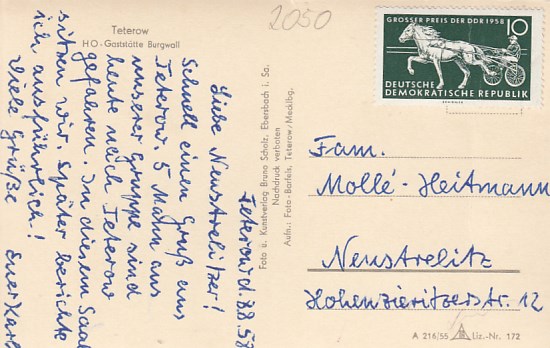 Teterow
HO-Gaststätte Burgwall
2050
GROSSER PREIS DER DDR 1958
10
DEUTSCHE
DEMOKRATISCHE REPUBLIK
Teterow d. 7.8.58
Liebe Neustrelitzer!
Schnell einen Gruß aus
Teterow. 5 Mann aus
unserer Gruppe sind
heute nach Teterow
gefahren. In diesem Saal
sitzen wir. Später berichte
ich ausführlich!
Viele Grüße
Euer Karl
Foto u. Kunstverlag Bruno Scholz, Ebersbach i. Sa.
Nachdruck verboten
Aufn.: Foto-Bartels, Teterow/Mecklbg.
Fam.
Mollé-Heitmann
Neustrelitz
Hohenzieritzerstr. 12
A 216/55 Liz.-Nr. 172